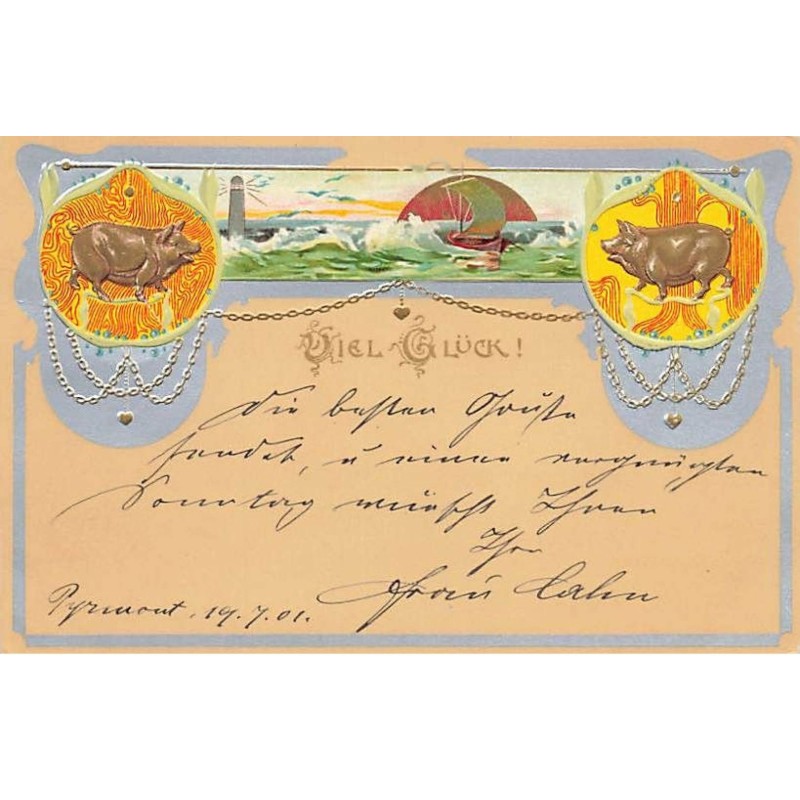 Viel Glück!
Die besten Grüße
sendet, u einen vergnügten
Sonntag wünscht Ihnen
Ihre
Frau Cahn
Pyrmont, 19.7.01.